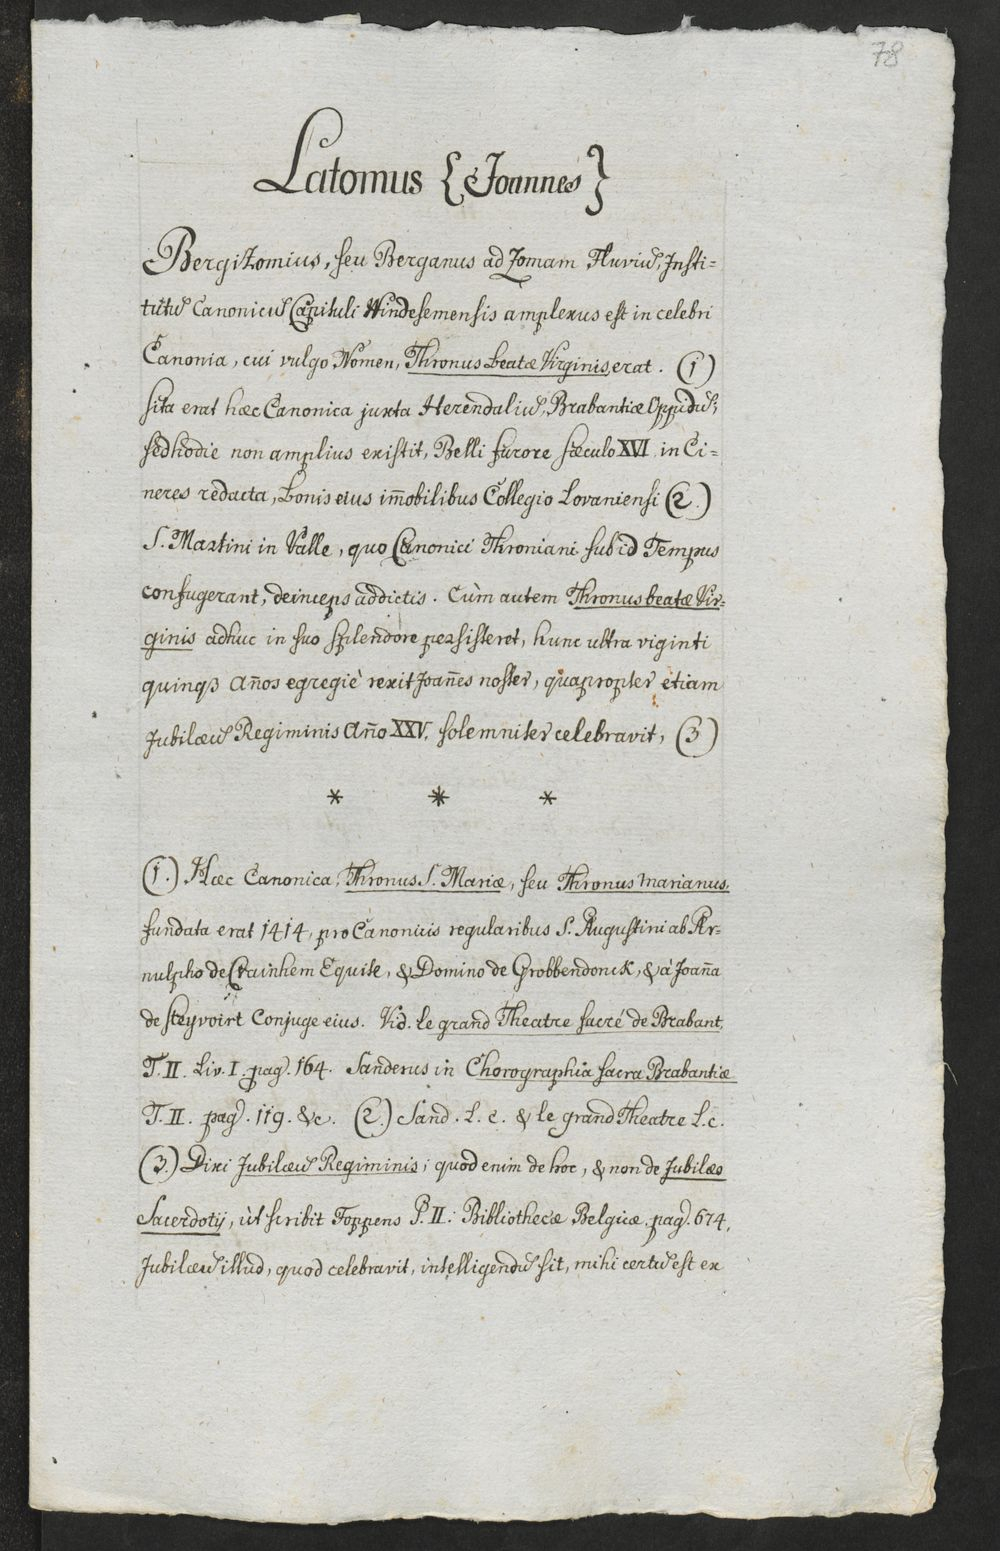 78
Latomus {Joannes}
Bergizomius, seu Berganus ad Zomam Fluviũ, Insti=
tutũ Canonicũ Capituli Windesemensis amplexus est in celebri
Canonia, cui vulgo Nomen, Thronus beatæ Virginis, erat. (1)
sita erat hæc Canonica juxta Herendaliũ, Brabantiæ Oppidũ,
sed hodie non amplius existit, Belli furore sæculo XVI. in Ci=
neres redacta, bonis eius im̃obilibus Collegio Lovaniensi (2.)
S. Martini in Valle, quo Canonici Throniani sub id Tempus
confugerant, deinceps addictis. Cùm autem Thronus beatæ Vir=
ginis adhuc in suo splendore persisteret, hunc ultra viginti
quinqꝫ an̄os egregiè rexit Joan̄es noster, quapropter etiam
Jubilæũ Regiminis An̄o XXV. solemniter celebravit, (3)
* * *
(1.) Hæc Canonica, Thronus S. Mariæ, seu Thronus Marianus,
fundata erat 1414, pro Canonicis regularibus S. Augustini ab Ar=
nulpho de Crainhem Equite, & Domino de Grobbendonck, & à Joan̄a
de steyvoirt Conjuge eius. Vid. le grand Theatre sacré de Brabant,
T. II. Liv. I. pag. 164. Sanderus in Chorographia sacra Brabantiæ
T. II. pag. 119. &c. (2.) Sand. l. c. & le grand Theatre l. c.
(3.) Dixi Jubilæũ Regiminis; quod enim de hoc, & non de Jubilæo
Sacerdotij, ùt scribit Foppens P. II. Bibliothecæ Belgicæ pag. 674,
Jubilæũ illud, quod celebravit, intelligendũ sit, mihi certũ est ex